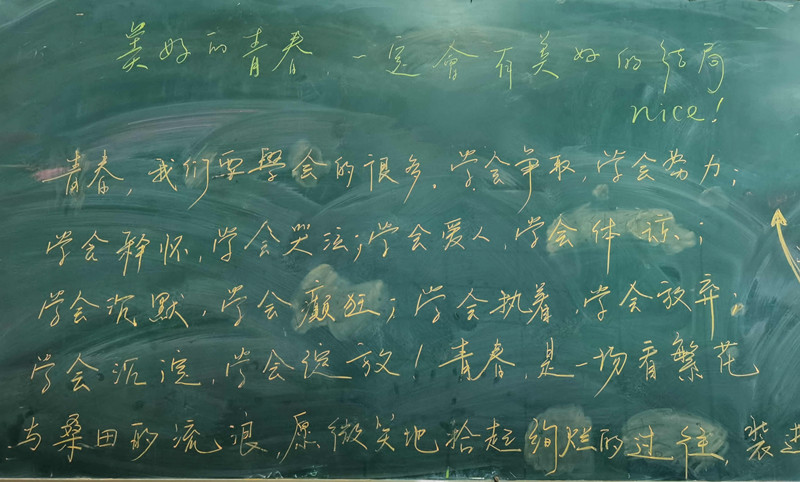 美好的青春,一定會有美好的结局
nice!
青春,我们要學会的很多。学会争取,学会努力;
学会释怀,学会哭泣;学会爱人,学会体谅;
学会沉默,学会癫狂;学会执着,学会放弃;
学会沉淀,学会绽放!青春,是一场看繁花
与桑田的流浪,愿微笑地拾起绚烂的过往,装进